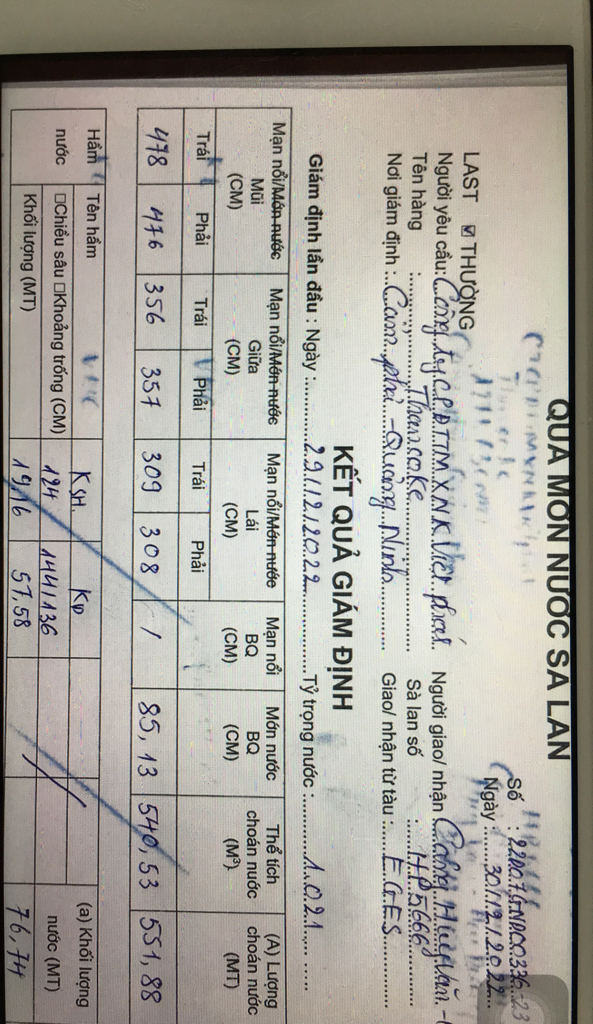 QUA MỚN NƯỚC SÀ LAN
Số : 22D07GNDC00336-23
Ngày : 30/12/2022
LAST ☑ THƯỜNG
Người yêu cầu: Công ty CPĐTTM XNK Việt phát. Người giao/ nhận
Tên hàng : Than coke Sà lan số : HP5666
Nơi giám định : Cẩm phả - Quảng Ninh Giao/ nhận từ tàu : EGES
KẾT QUẢ GIÁM ĐỊNH
Giám định lần đầu : Ngày : 29/12/2022 Tỷ trọng nước : 1.021
Mạn nổi/Mớn nước Mạn nổi/Mớn nước Mạn nổi/Mớn nước Mạn nổi Mớn nước Thể tích (A) Lượng
Mũi Giữa Lái BQ BQ choán nước choán nước
(CM) (CM) (CM) (CM) (CM) (M³) (MT)
Trái Phải Trái Phải Trái Phải
478 476 356 357 309 308 / 85,13 540,53 551,88
Hầm Tên hầm KSH KĐ (a) Khối lượng
nước □Chiều sâu □Khoảng trống (CM) 124 144/136 nước (MT)
Khối lượng (MT) 19,16 57,58 76,74